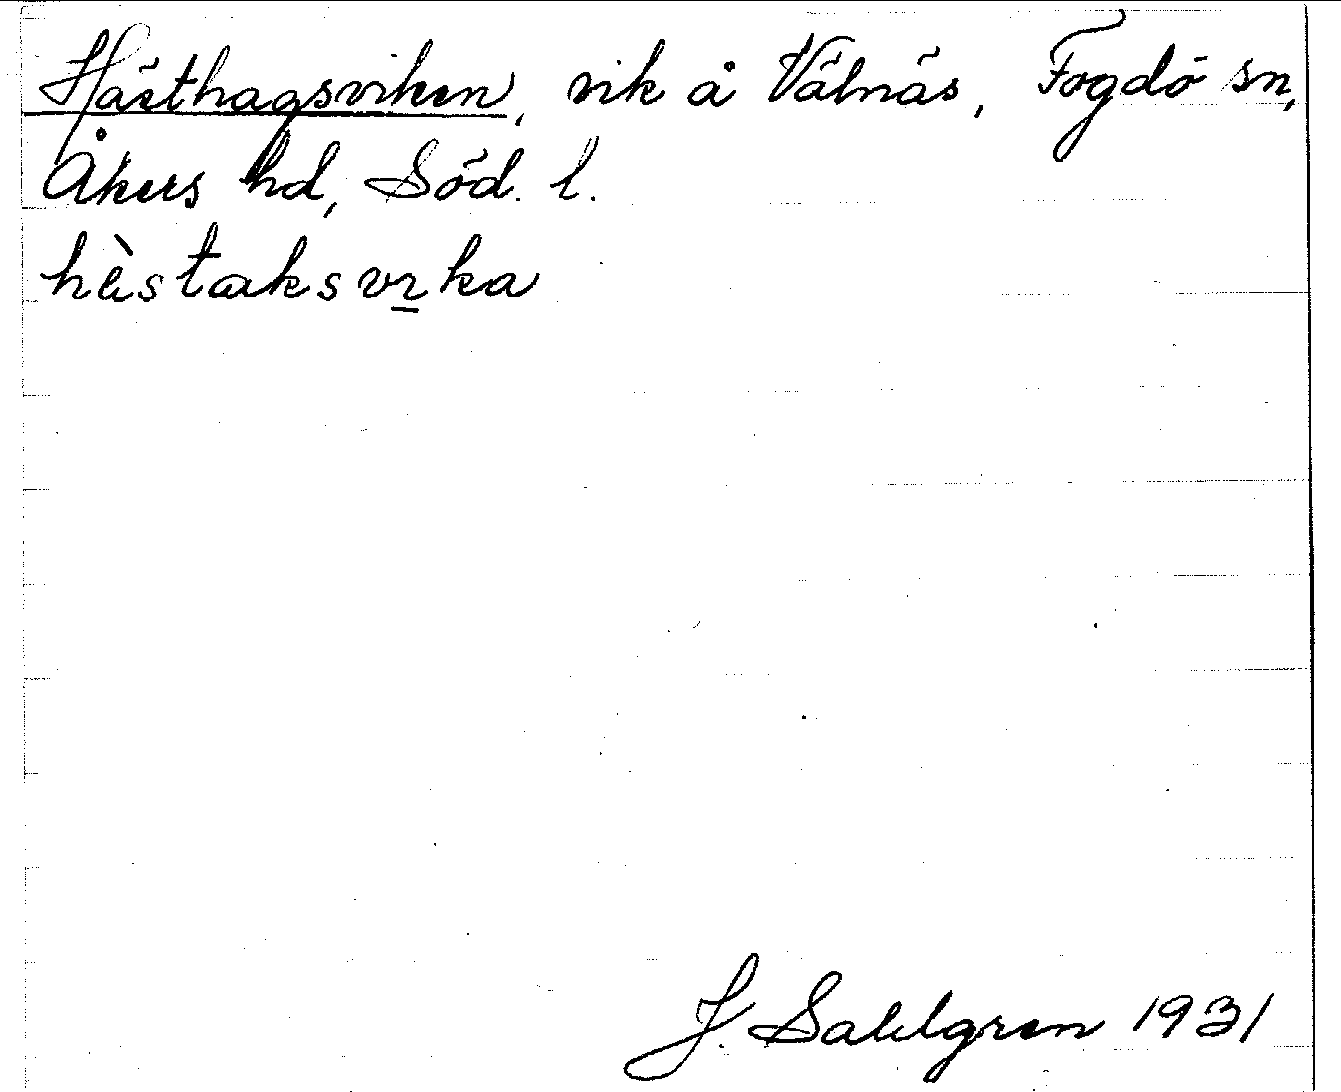 Hästhagsviken, vik å Vålnäs, Fogdö sn,
Åkers hd, Söd. l.
hàstaksvıka
J. Sahlgren 1931